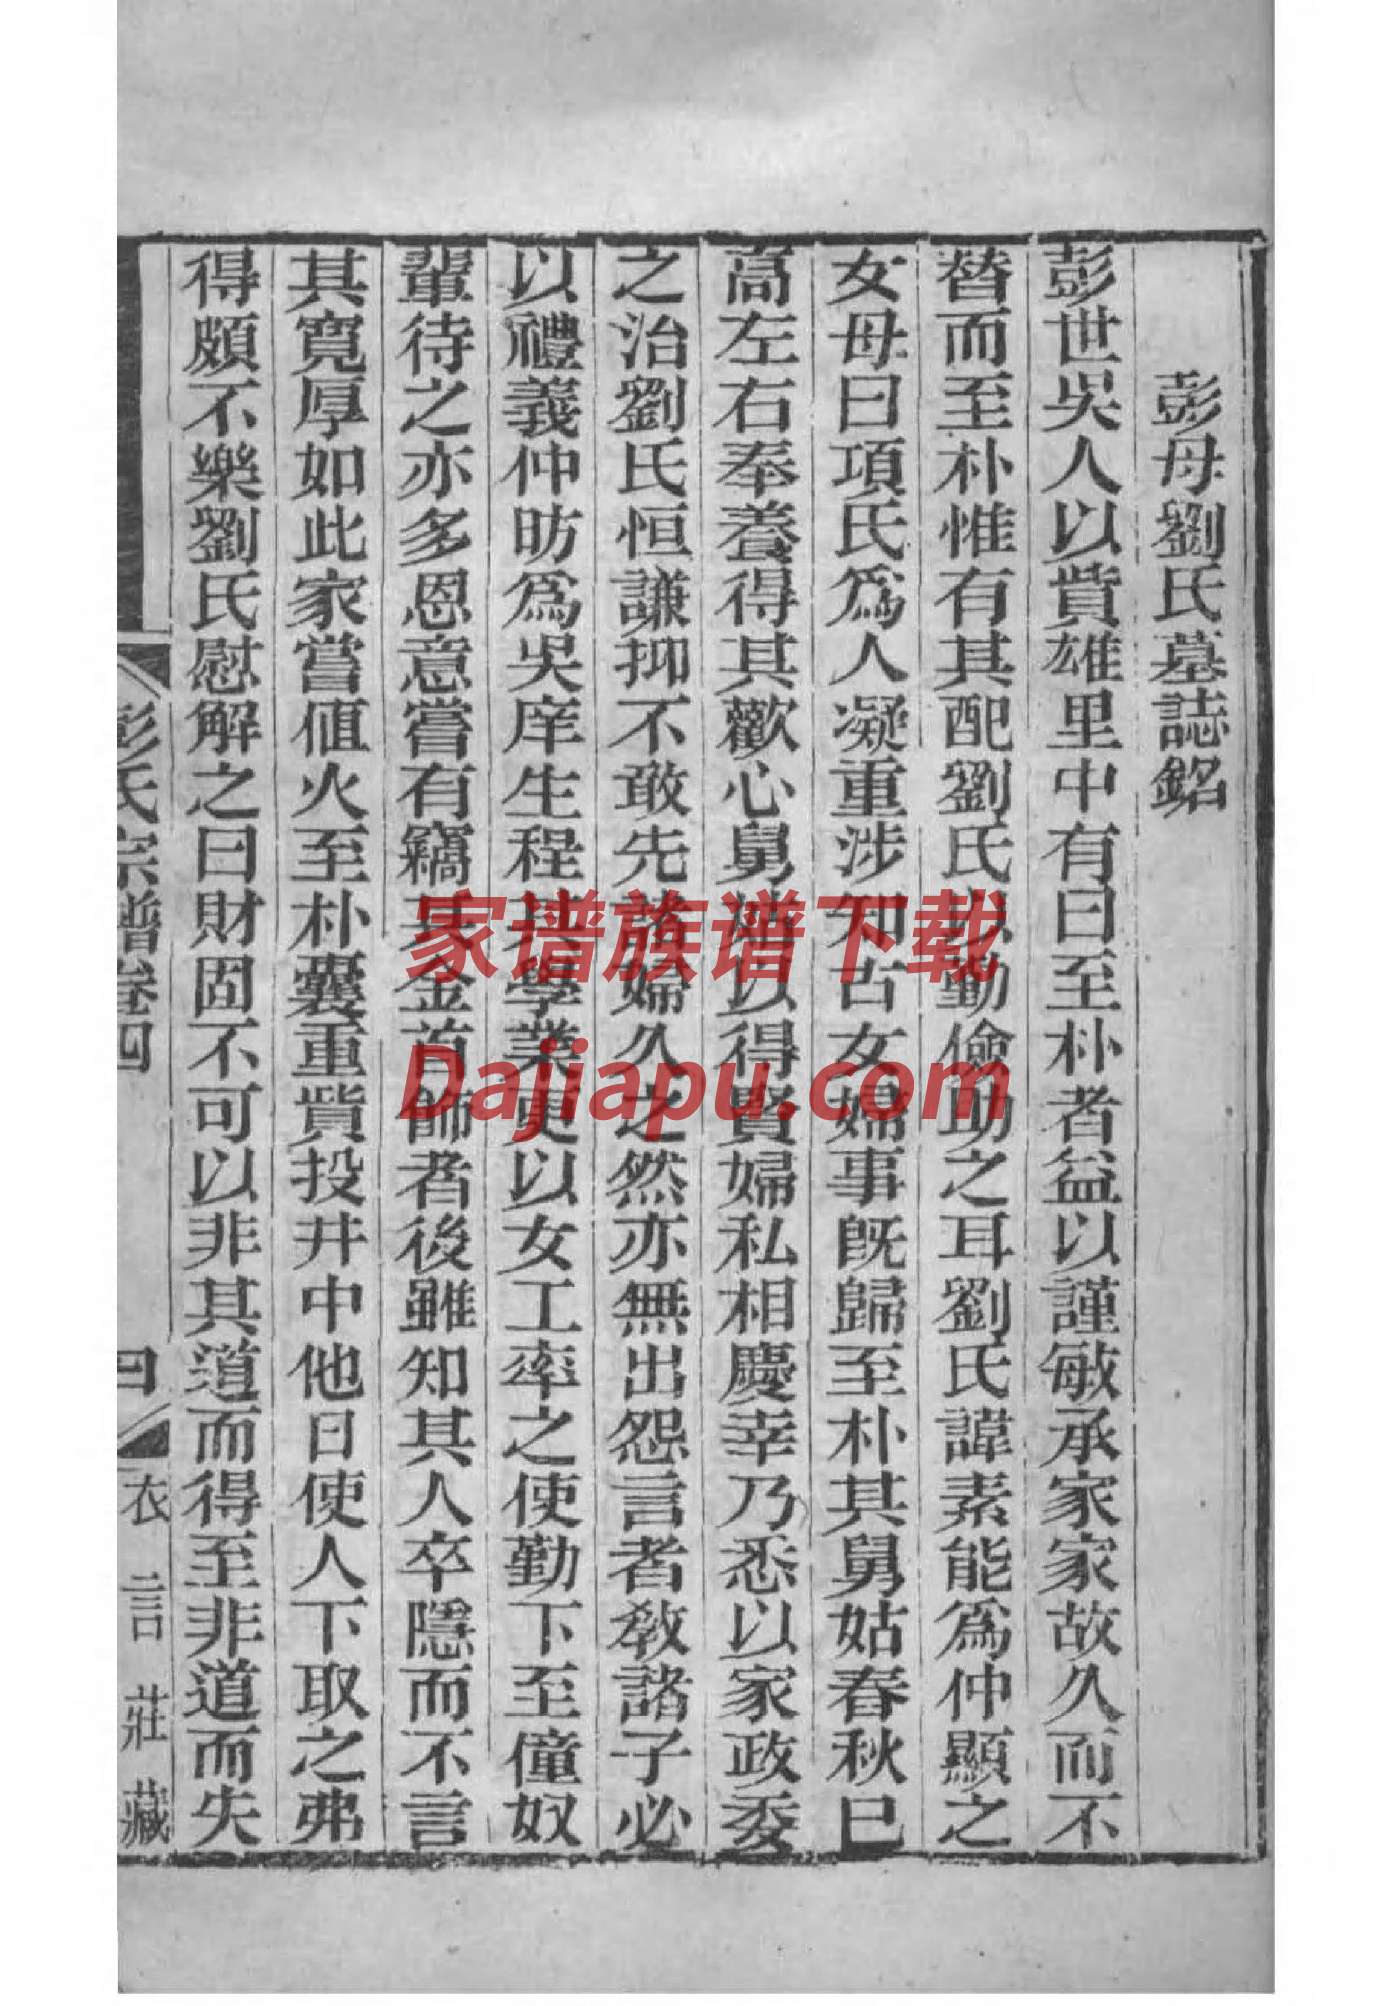 彭母劉氏墓誌銘
彭世吳人以貲雄里中有曰至朴者益以謹敏承家家故久而不
替而至朴惟有其配劉氏以勤儉助之耳劉氏諱素能為仲顯之
女母曰項氏為人凝重涉知古女婦事旣歸至朴其舅姑春秋巳
高左右奉養得其歡心舅姑以得賢婦私相慶幸乃悉以家政委
之治劉氏恒謙抑不敢先諸婦久之然亦無出怨言者教諸子必
以禮義仲昉為吳庠生程其學業更以女工率之使勤下至僮奴
輩待之亦多恩意嘗有竊其金首飾者後雖知其人卒隱而不言
其寬厚如此家嘗值火至朴囊重貲投井中他日使人下取之弗
得頗不樂劉氏慰解之曰財固不可以非其道而得至非道而失
彭氏宗譜卷四
四
衣言莊藏
家谱族谱下载
Dajiapu.com